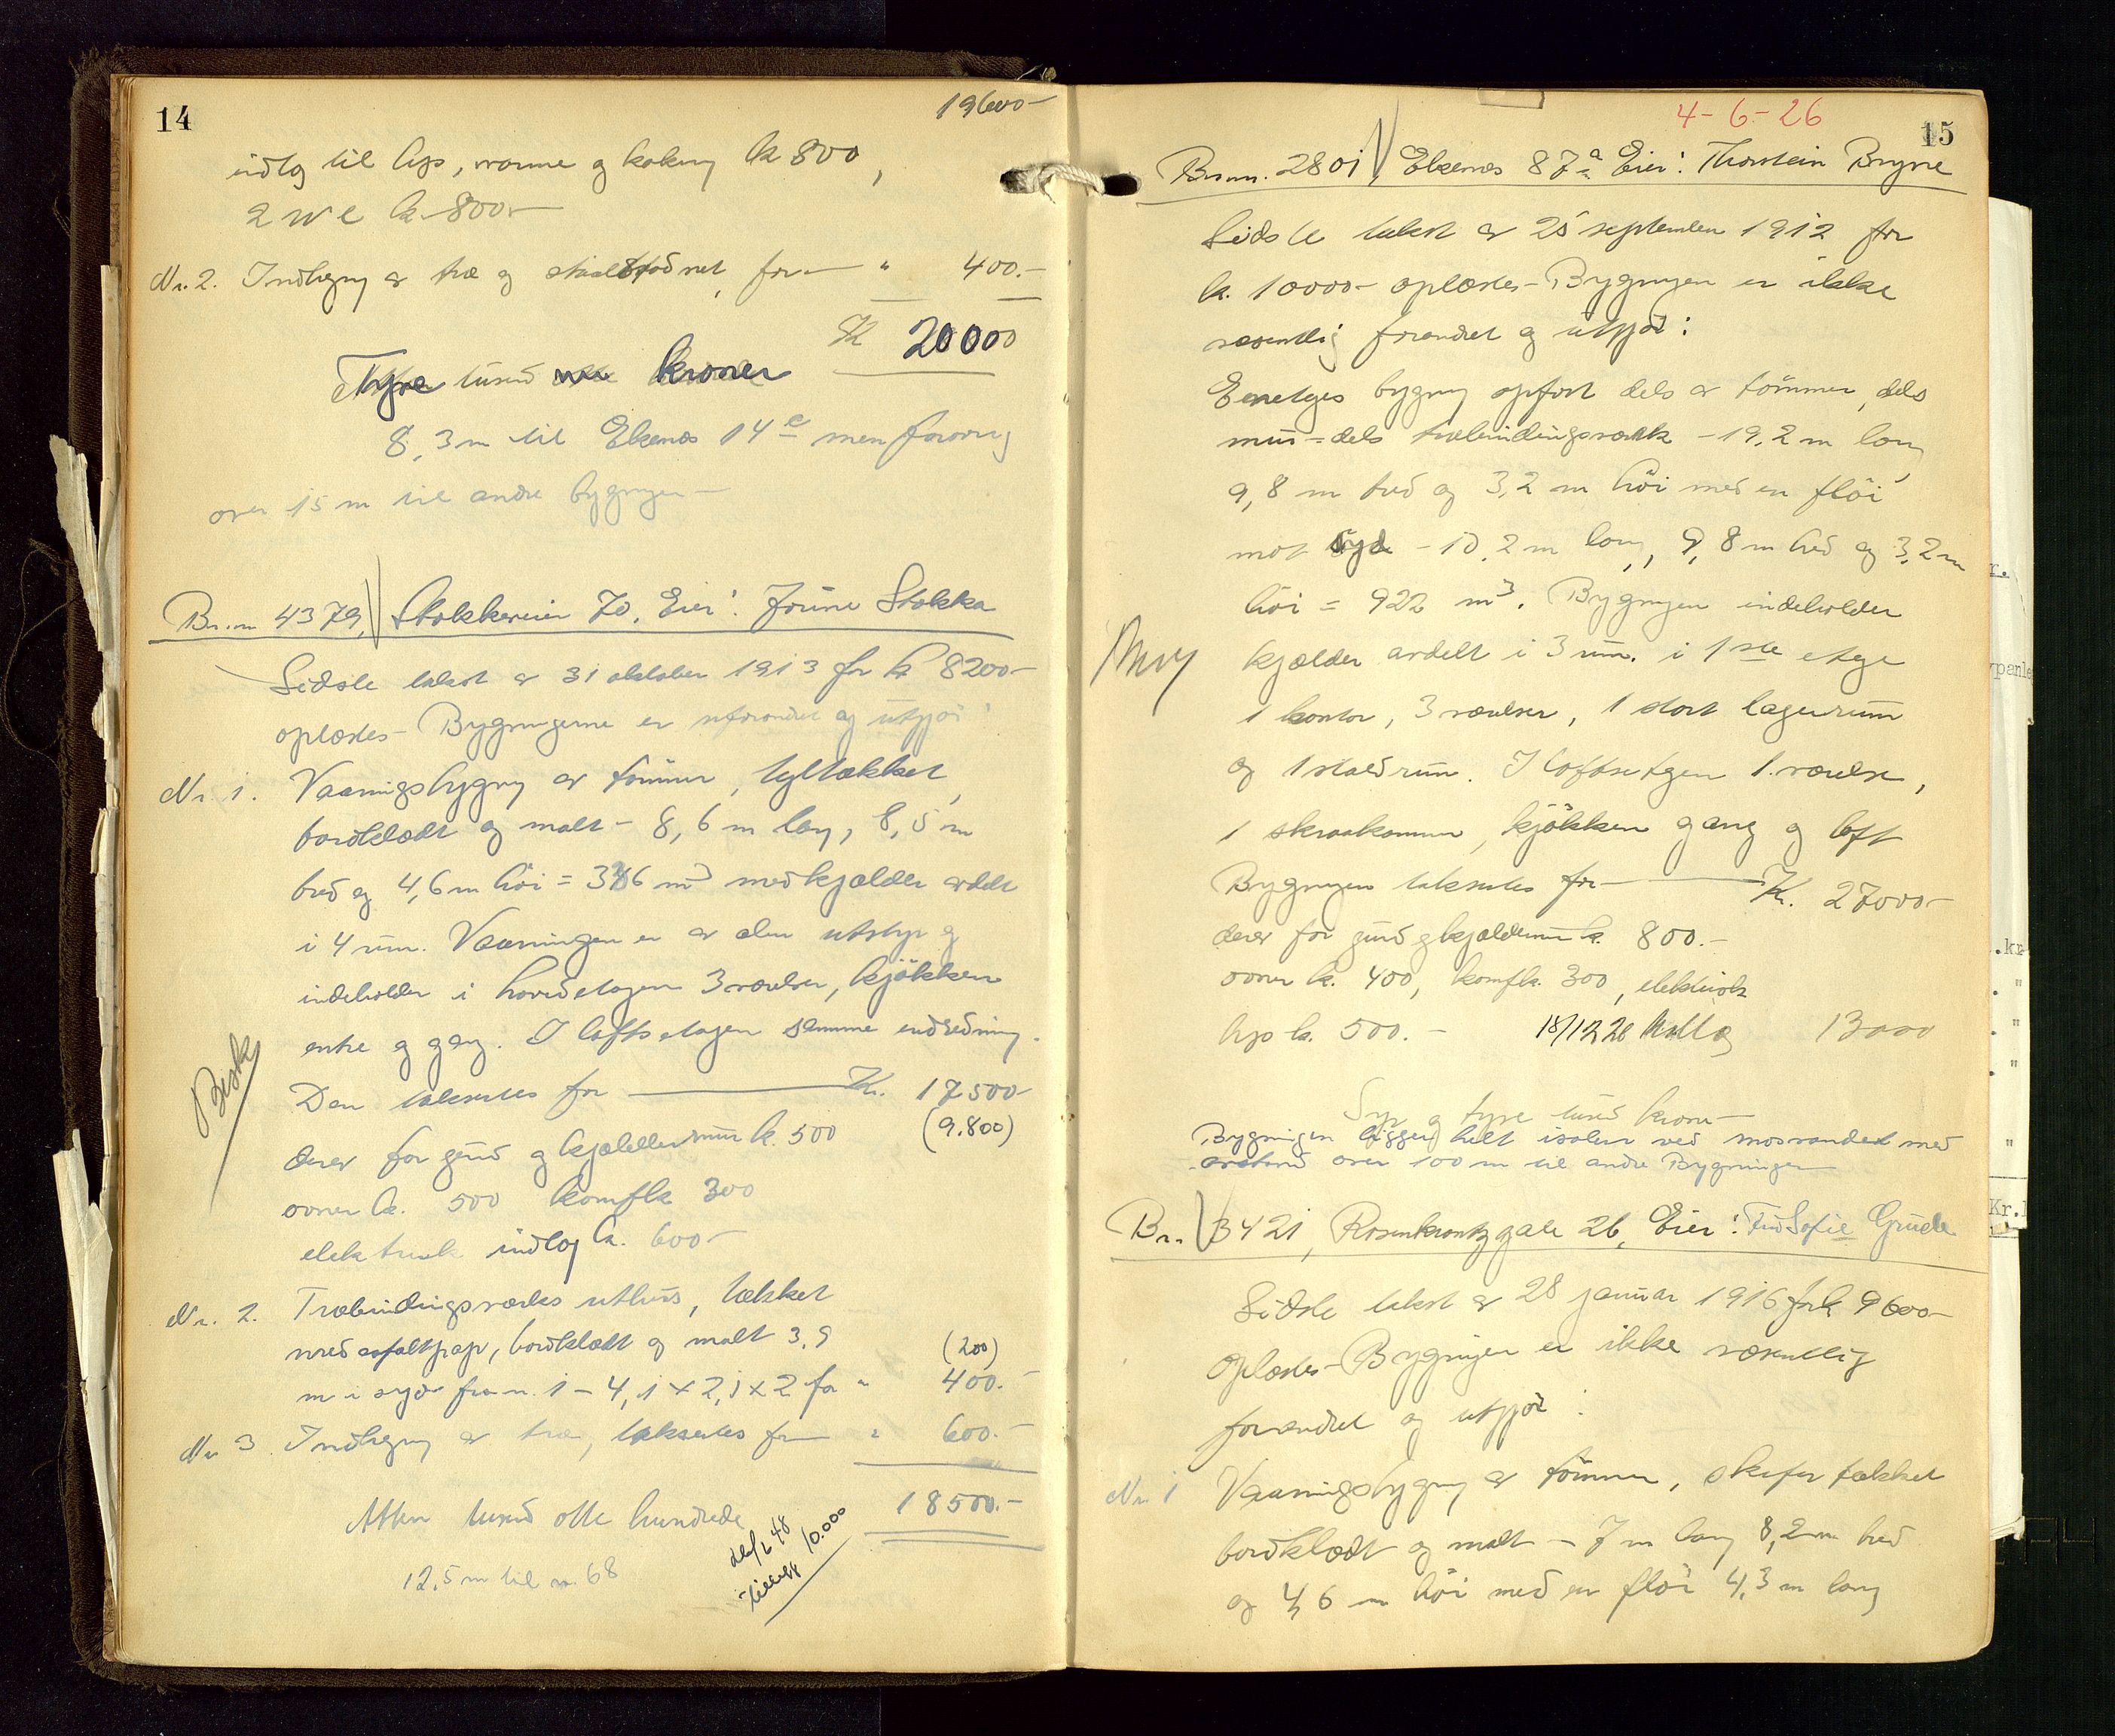 14
19600-
indlg til lys, varme og koking kr 800,
2 W C kr. 800.-
Nr. 2. Indhegn av træ og for - " 400.-
Kr 20000
Tyve tusind kroner
8,3 m til Ekenes 14 e men forøvrig
over 15 m til andre bygninger -
Br.nr 4379, Stokkeveien 70, Eier: Jorunn Stokka
Sidste takst av 31 oktober 1913 for kr 8200-
oplæstes - Bygningerne er uforandret og utgjør:
Nr. 1. Vaaningsbygning av tømmer, tegltækket,
bordklædt og malt - 8,6 m lang, 8,5 m
bred og 4,6 m høi = 336 m³ med kjælder avdelt
i 4 rum. Vaaningen er av alm utstyr og
indeholder i hovedetagen 3 værelser, kjøkken
entre og gang. I loftsetagen samme indredning.
Besk
Den takseres for - Kr. 17500-
(9.800)
derav for grund og kjælderrum kr. 500
ovner kr. 500 komf kr 300
elektrisk indlæg kr. 600-
Nr. 2. Træbindingsverks uthus, tækket
med asfaltpap, bordklædt og malt 3,9
(200)
m i syd fra nr. 1 - 4,1 x 2,1 x 2 for " 400.-
Nr 3. Indhegning av træ, takseres for - " 600.-
18500.-
Atten tusind otte hundrede
12,5 m til nr. 68
48
tillegg 10.000
4-6-26
15
Br.nr. 2801, Ekenes 87 a Eier: Thorstein Bryne
Sidste takst av 25 september 1912 for
kr. 10000- oplæstes - Bygningen er ikke
væsentlig forandret og utgjør:
Enetages bygning opført dels av tømmer, dels
mur - dels træbindingsverk - 19,2 m lang
9,8 m bred og 3,2 m høi med en fløi
mot syd - 10,2 m lang, 9,8 m bred og 3,2 m
høi = 922 m³. Bygningen indeholder
kjælder avdelt i 3 rum. i 1ste etage
1 kontor, 3 værelser, 1 stort lagerrum
og 1 staldrum. I loftsetagen 1 værelse,
1 skraakammer, kjøkken gang og loft
Bygningen takseres for - Kr. 27000-
derav for grund og kjælderrum kr. 800.-
ovner kr. 400, komf kr. 300, elektrisk
lys kr. 500.- 18/12 28 13000
Syv og tyve tusind kroner -
Bygningen ligger helt isolert ved mosvandet med
avstand over 100 m til andre Bygninger
Br. 3421, Rosenkrantzgate 26, Eier: Sofie Grude
Sidste takst av 28 januar 1916 for kr 9600-
oplæstes - Bygningen er ikke væsentlig
forandret og utgjør:
Nr. 1 Vaaningsbygning av tømmer, skifertækket
bordklædt og malt - 7 m lang 8,2 m bred
og 4,6 m høi med en fløi 4,3 m lang
ypanle
.kr
Kr.1